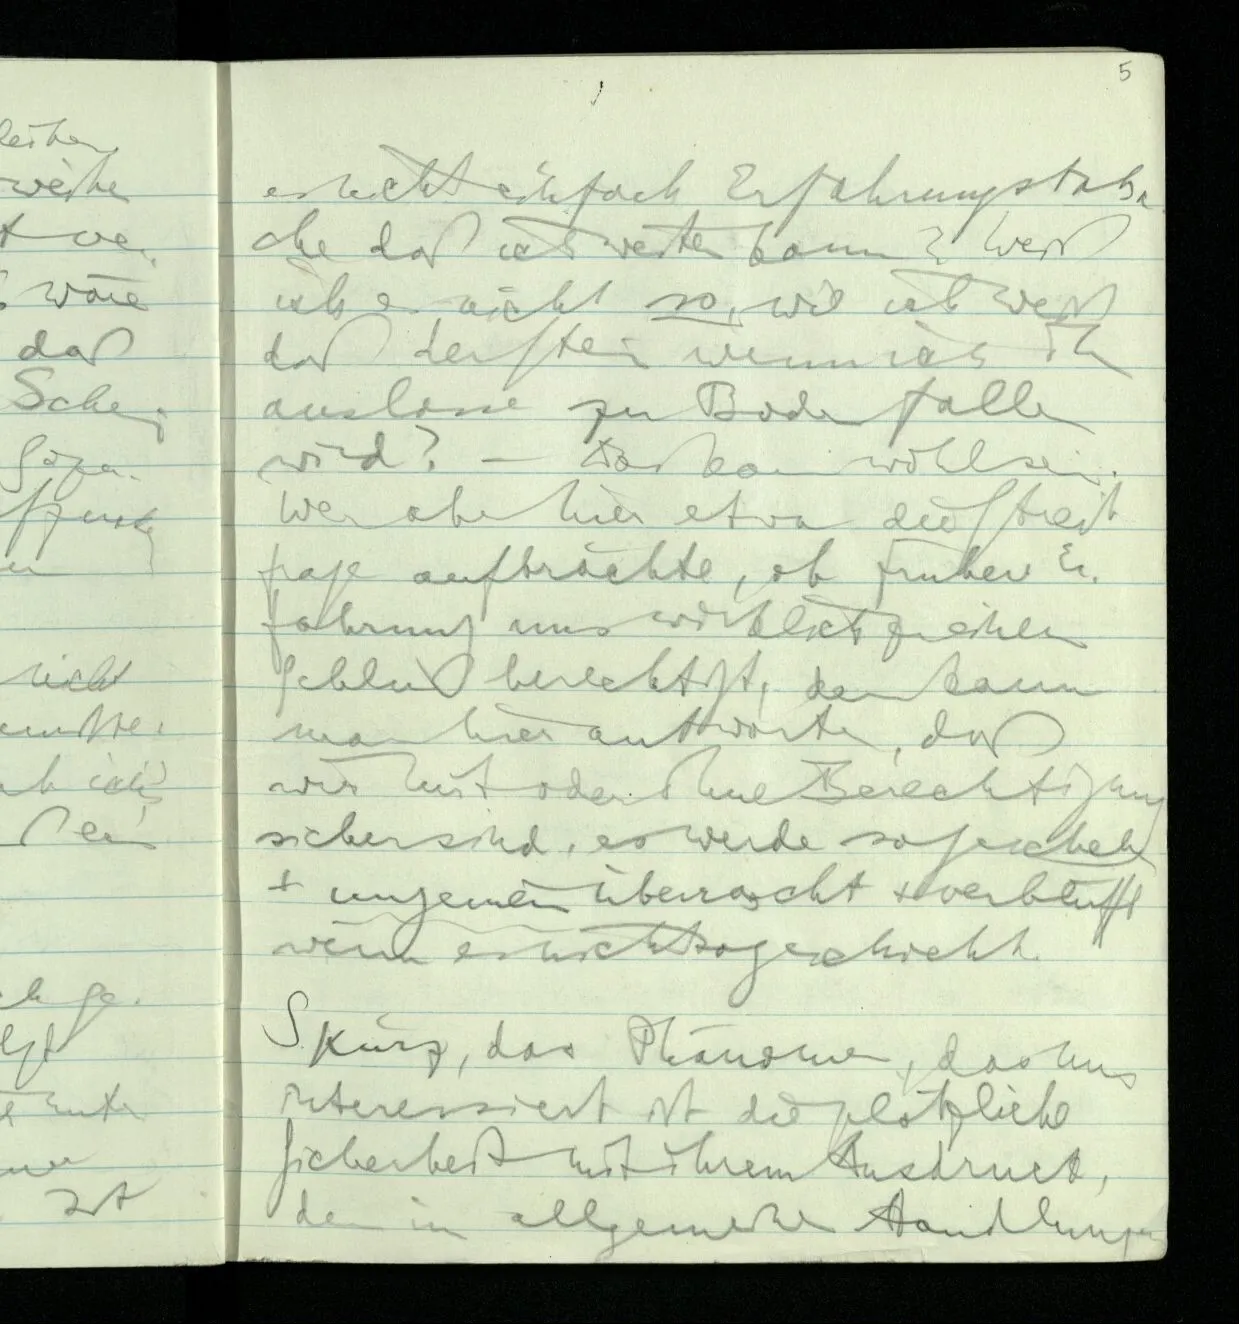 5
es nicht einfach Erfahrungstatsa
che daß ich weiter kann? Weiß
ich es nicht so, wie ich weiß
daß der Stein wenn ich ihn
auslasse zu Boden fallen
wird? — Das kann wohl sein.
Wer aber hier etwa die Streit
frage aufbrächte, ob frühere Er-
fahrung uns wirklich zu einem
Schluß berechtigt, dem kann
man hier antworten, daß
wir mit oder ohne Berechtigung
sicher sind, es werde so geschehen
+ ungemein überrascht + verblüfft
wenn es nicht so geschieht.
S Kurz, das Phänomen, das uns
interessiert ist die plötzliche
Sicherheit mit ihrem Ausdruck,
den in allgemeinen Handlungen
weihe
wäre
daß
nicht
ist